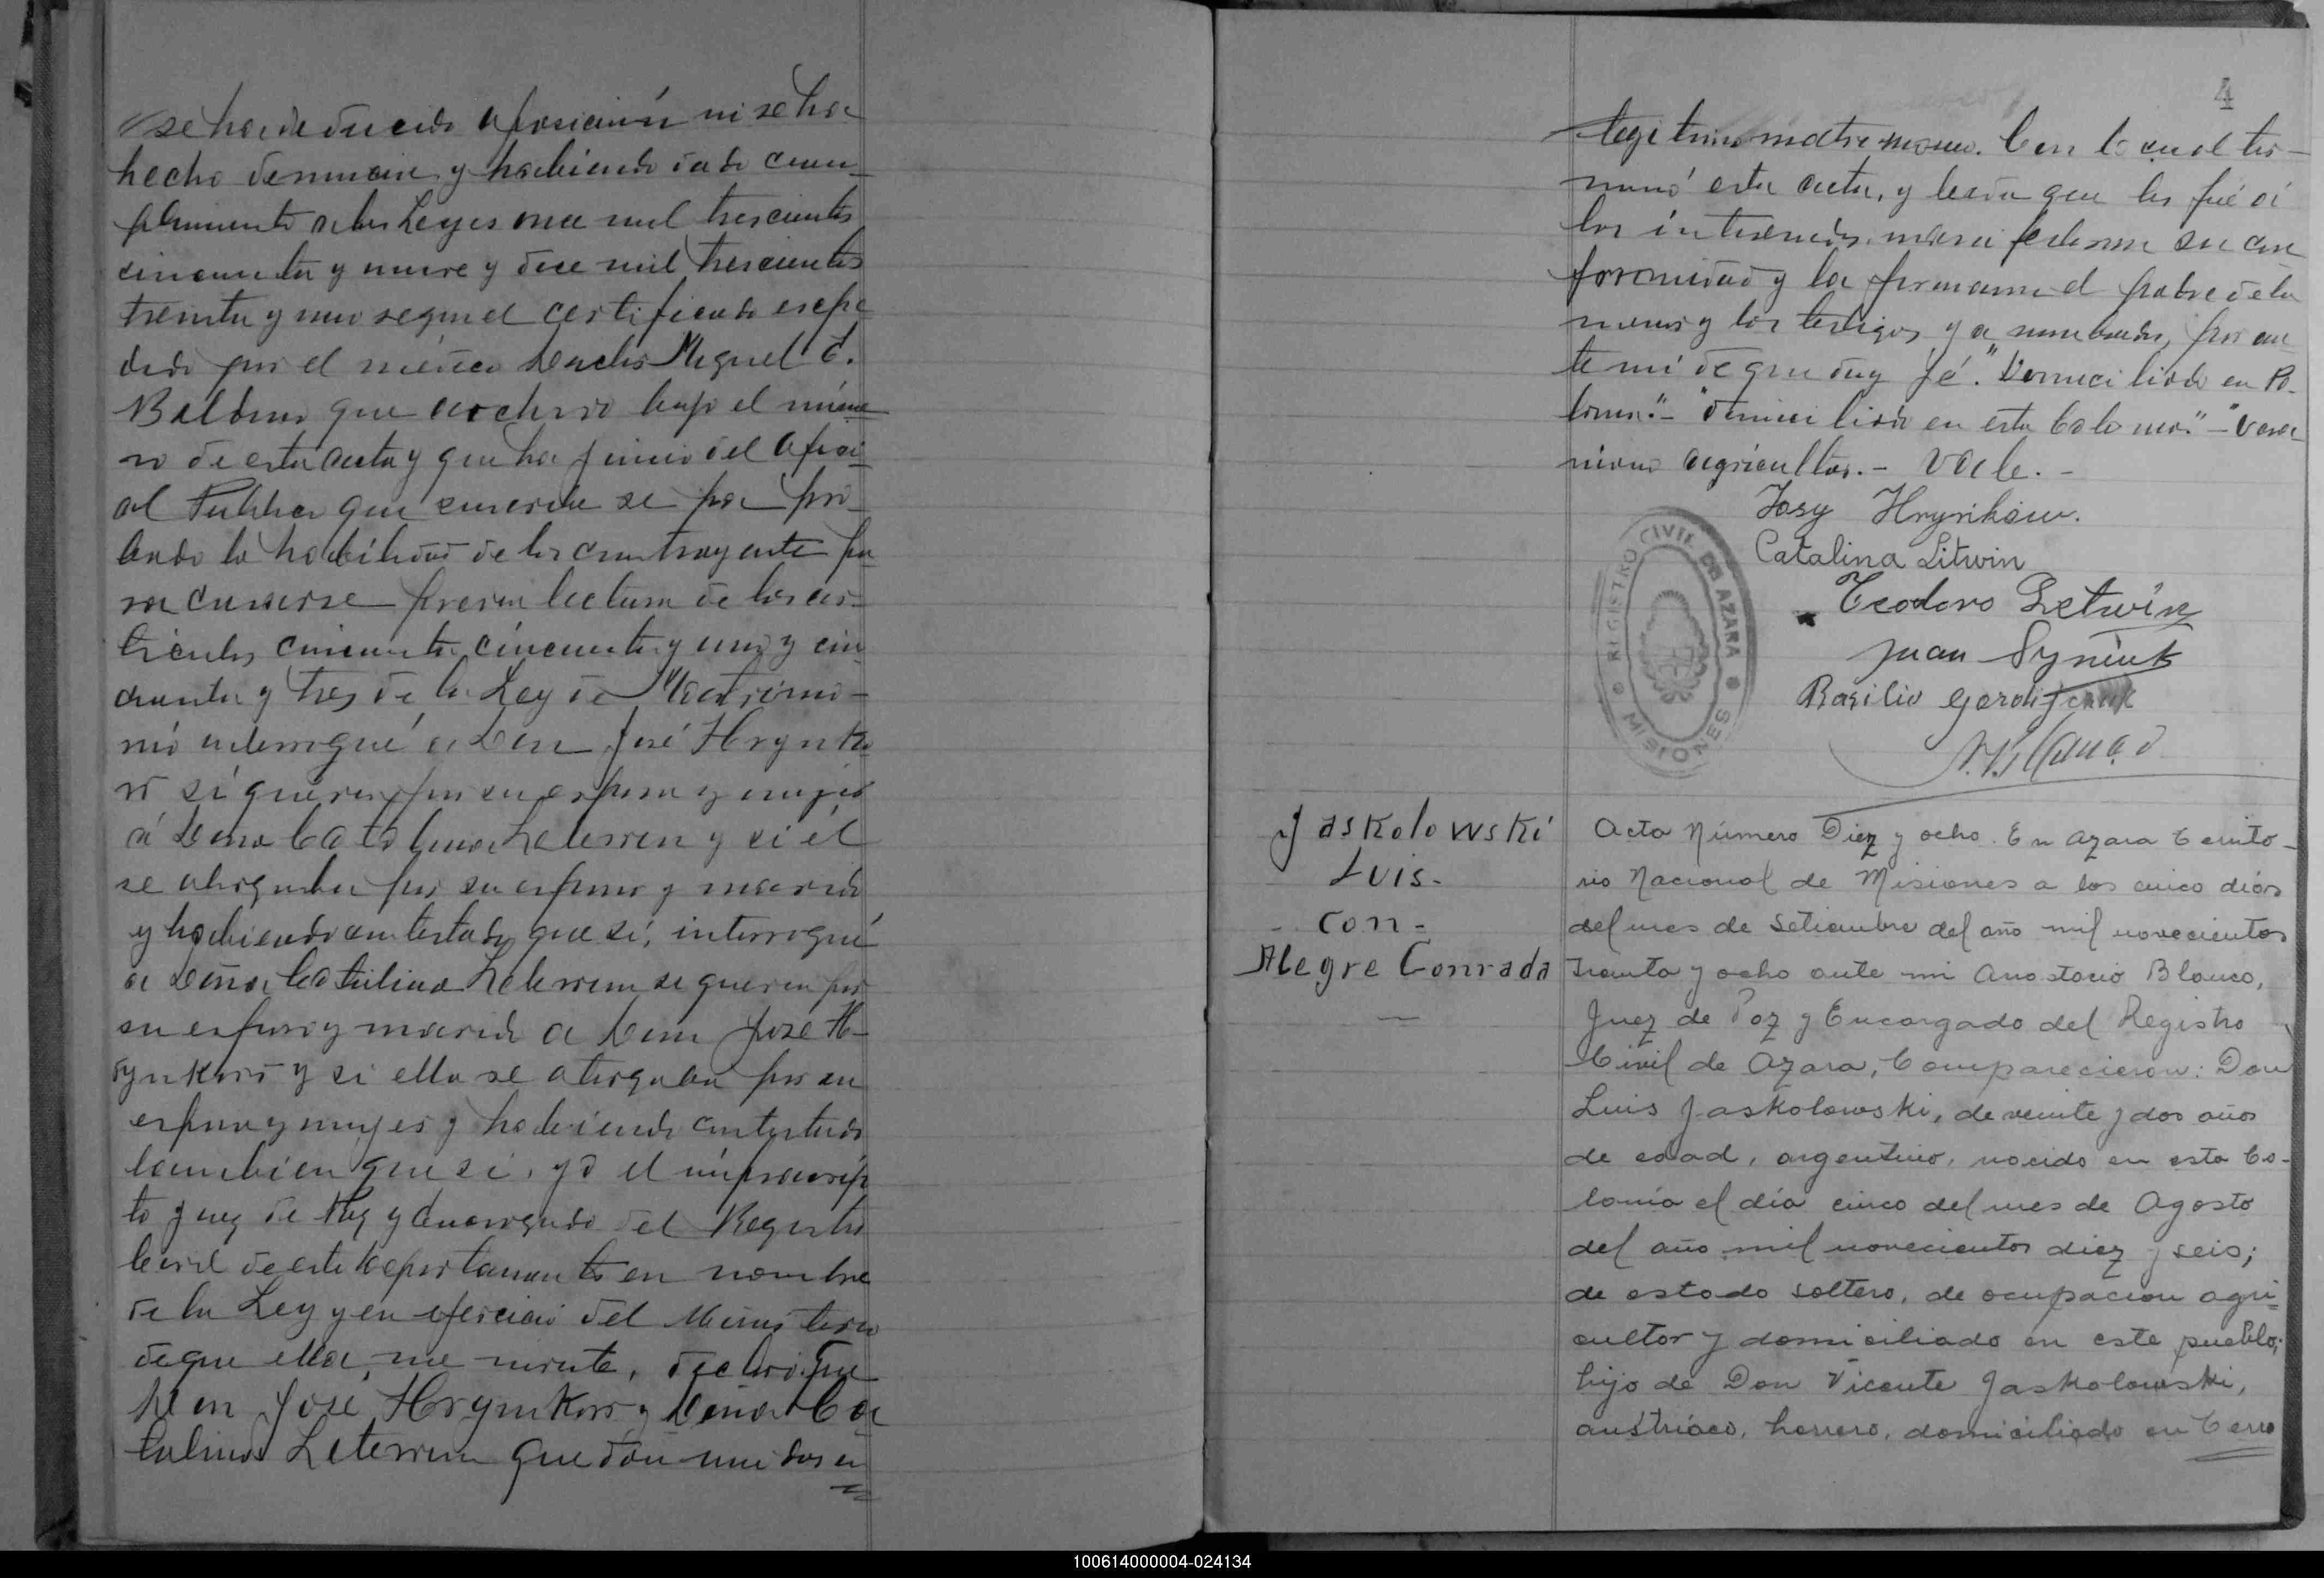 se ha deducido oposición ni se ha
hecho denuncia y habiendo dado cum-
plimiento a las Leyes once mil trescientos
cincuenta y nueve y doce mil trescientos
treinta y uno segun el certificado expe
dido por el médico Doctor Miguel C.
que archivo bajo el núme
ro de esta acta y que ha juicio del ofici
al Publico que suscribe se ha pro-
bado la habilidad de los contrayente pa
ra casarse previa lectura de los ar-
ticulos cincuenta cincuenta y uno y cin
cuenta y tres de la Ley de Matrimo-
nio interrogué a Don José Hrynko
w si queria por su esposa y mujer
á Doña Catalina Leterwin y si él
se otorgaba por su esposo y marido
y habiendo contestado que sí, interrogué
a Doña Catalina Leterwin si queria por
su esposo y marido a Don José H-
rynkow y si ella se otorgaba por su
esposa y mujer y habiendo contestado
tambien que si, yo el infrascrip
to Juez de Paz y Encargado del Registro
Civil de este Departamento en nombre
de la Ley y en ejercicio del Ministerio
de que ella me inviste, declaro: Que
Don José Hrynkow y Doña Ca
talina Leterwin quedan unidos en
4
legitimo matrimonio. Con lo cual ter-
minó esta acta, y leida que les fué á
los interesados manifestaron su con
formidad y la firmaron el padre de la
menor y los testigos ya nombrados, por an
te mi de que doy fé. "Domiciliado en Po-
lonia" - "domiciliado en esta Colonia" -
agricultor. - Vale. -
Josy Hrynkow.
Catalina Litwin
Teodoro Letwin
Juan Syniuk
Basilio
REGISTRO CIVIL DE AZARA
MISIONES
Jaskolowski
Luis.
- con -
Alegre Conrada
Acta Número Diez y ocho. En Azara Territo-
rio Nacional de Misiones a los cinco dias
del mes de Setiembre del año mil novecientos
treinta y ocho ante mi Anastacio Blanco,
Juez de Paz y Encargado del Registro
Civil de Azara, Comparecieron: Don
Luis Jaskolowski, de veinte y dos años
de edad, argentino, nacido en esta Co-
lonia el día cinco del mes de Agosto
del año mil novecientos diez y seis;
de estado soltero, de ocupacion agri-
cultor y domiciliado en este pueblo;
hijo de Don Vicente Jaskolowski,
austriaco, herrero, domiciliado en Cerro
100614000004-024134